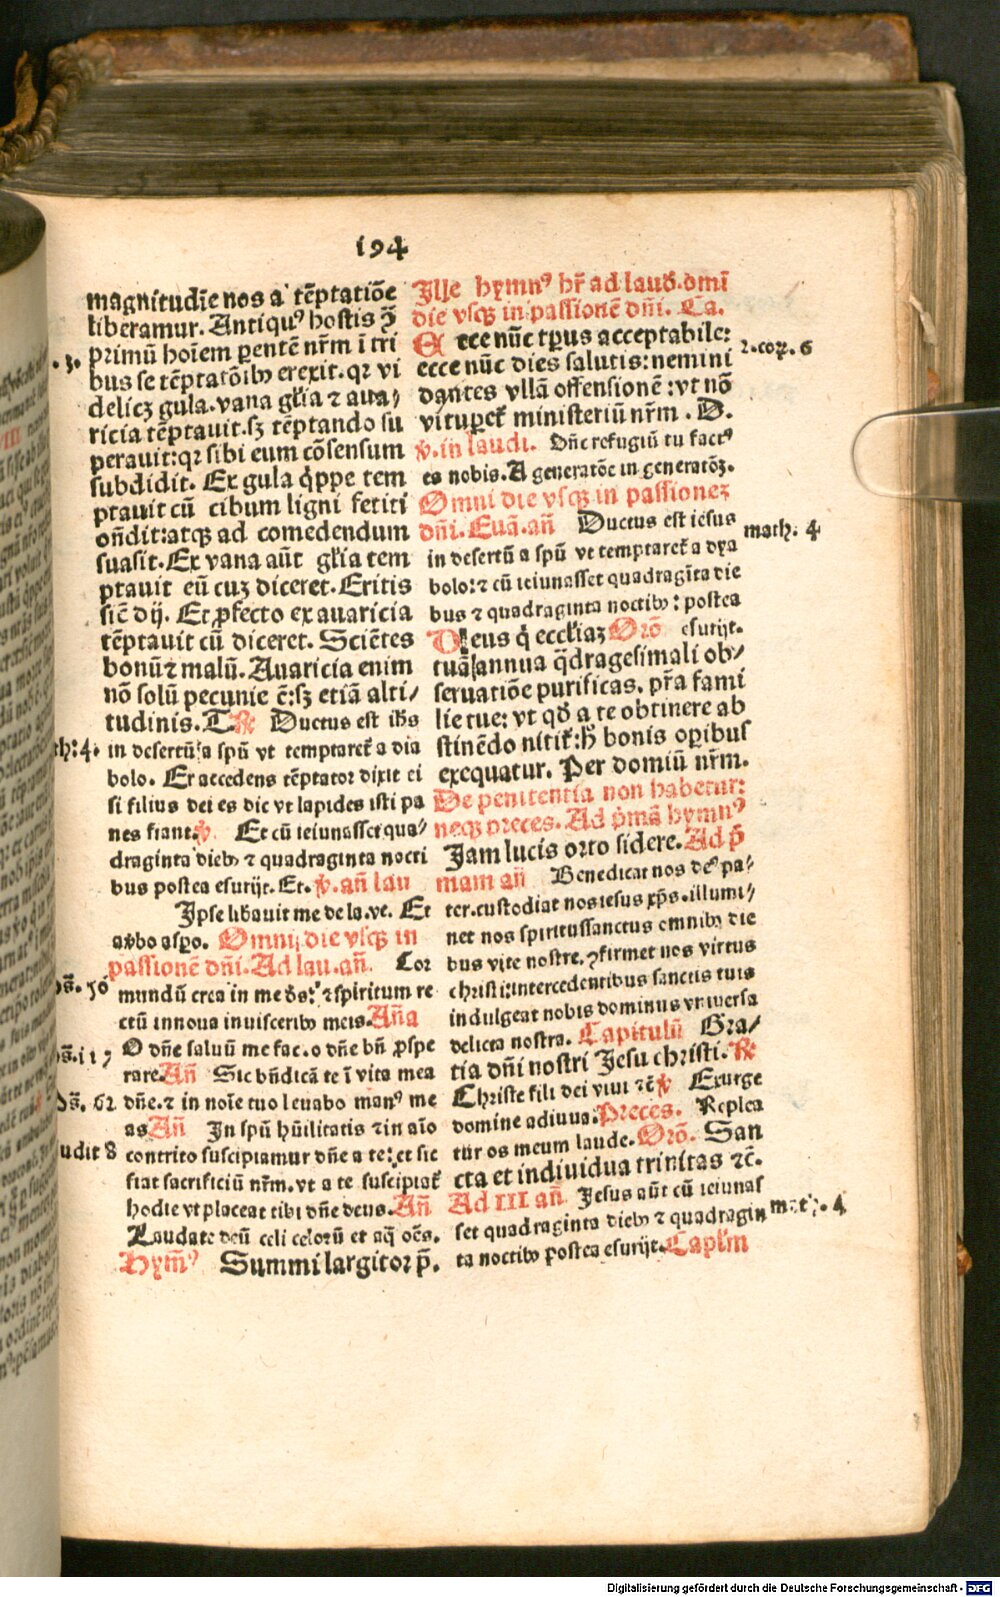 194
magnitudīe nos a tēptatiōe
liberamur. Antiquꝰ hostis ꝙ̄
.3. primū hoīem ꝑentē nr̄m ī tri
bus se tēptatōibꝫ erexit. qꝛ vi
delicꝫ gula. vana gl̄ia ⁊ aua⸗
ricia tēptauit. sꝫ tēptando su
perauit: qꝛ sibi eum cōsensum
subdidit. Ex gula q̇ppe tem
ptauit cū cibum ligni fetiti
on̄dit: atqꝫ ad comedendum
suasit. Ex vana aūt gl̄ia tem
ptauit eū cuꝫ diceret. Eritis
sic̄ dij. Et ꝓfecto ex auaricia
tēptauit cū diceret. Sciētes
bonū ⁊ malū. Auaricia enim
nō solū pecunie ē: sꝫ etiā alti⸗
tudinis. T. ℟ Ductus est ih̄s
th: 4. in desertū a spū vt temptaret᷑ a dia
bolo. Et accedens tēptator dixit ei
si filius dei es dic vt lapides isti pa
nes fiant. ℣ Et cū ieiunasset qua⸗
draginta diebꝫ ⁊ quadraginta nocti
bus postea esurijt. Et. ℣. an̄ lau
Ipse libauit me de la. ve. Et
a v̓bo aspo. Omni die vsqꝫ in
passionē dn̄i. Ad lau. an̄. Cor
ps̄. 50 mundū crea in me dsꝰ: ⁊ spiritum re
ctū innoua in visceribꝫ meis. An̄a
ps̄. 117 O dn̄e saluū me fac. o dn̄e bn̄ ꝓspe
rare. An̄ Sic bn̄dicā te ī vita mea
ps̄. 62 dn̄e. ⁊ in noīe tuo leuabo manꝰ me
as An̄ In spū hūilitatis ⁊ in aīo
udit 8 contrito suscipiamur dn̄e a te: et sic
fiat sacrificiū nr̄m. vt a te suscipiat᷑
hodie vt placeat tibi dn̄e deus. An̄
Laudate deū celi celorū et aq̄ oēs.
Hym̄ꝰ Summi largitor p̄.
Ille hymnꝰ hr̄ ad laud̓. omī
die vsqꝫ in passionē dn̄i. Ca.
Ecce nūc tp̄us acceptabile: 2. coꝝ. 6
ecce nūc dies salutis: nemini
dantes vllā offensionē: vt nō
vituꝑet᷑ ministeriū nr̄m. D.
℣. in laudi. Dn̄e refugiū tu factꝰ
es nobis. A generatōe in generatōꝫ.
Omni die vsqꝫ in passionez
dn̄i. Euā. an̄ Ductus est iesus math. 4
in desertū a spū vt temptaret᷑ a dya
bolo: ⁊ cū ieiunasset quadragīta die
bus ⁊ quadraginta noctibꝫ: postea
Deus q̇ eccl̄iaꝫ Orō esurijt.
tuā annua q̄dragesimali ob⸗
seruatiōe purificas. p̄ra fami
lie tue: vt qd̓ a te obtinere ab
stinēdo nitit᷑: h̄ bonis oꝑibus
exequatur. Per domiū nr̄m.
De penitentia non habetur:
neqꝫ preces. Ad pmā hymnꝰ
Jam lucis orto sidere. Ad p̄
mam an̄ Benedicat nos deꝰ pa⸗
ter. custodiat nos iesus xp̄s. illumi⸗
net nos spiritussanctus omnibꝫ die
bus vite nostre. ꝯfirmet nos virtus
christi: intercedentibus sanctis tuis
indulgeat nobis dominus vniuersa
delicta nostra. Capitulū Gra⸗
tia dn̄i nostri Jesu christi. ℟
Christe fili dei viui ⁊c̄ ℣ Exurge
domine adiuua: Preces. Replea
tur os meum laude. Orō. San
cta et indiuidua trinitas ⁊c̄.
Ad III an̄ Jesus aūt cū ieiunas
set quadraginta diebꝫ ⁊ quadragin math. 4
ta noctibꝫ postea esurijt. Capl̄m
Digitalisierung gefördert durch die Deutsche Forschungsgemeinschaft - DFG